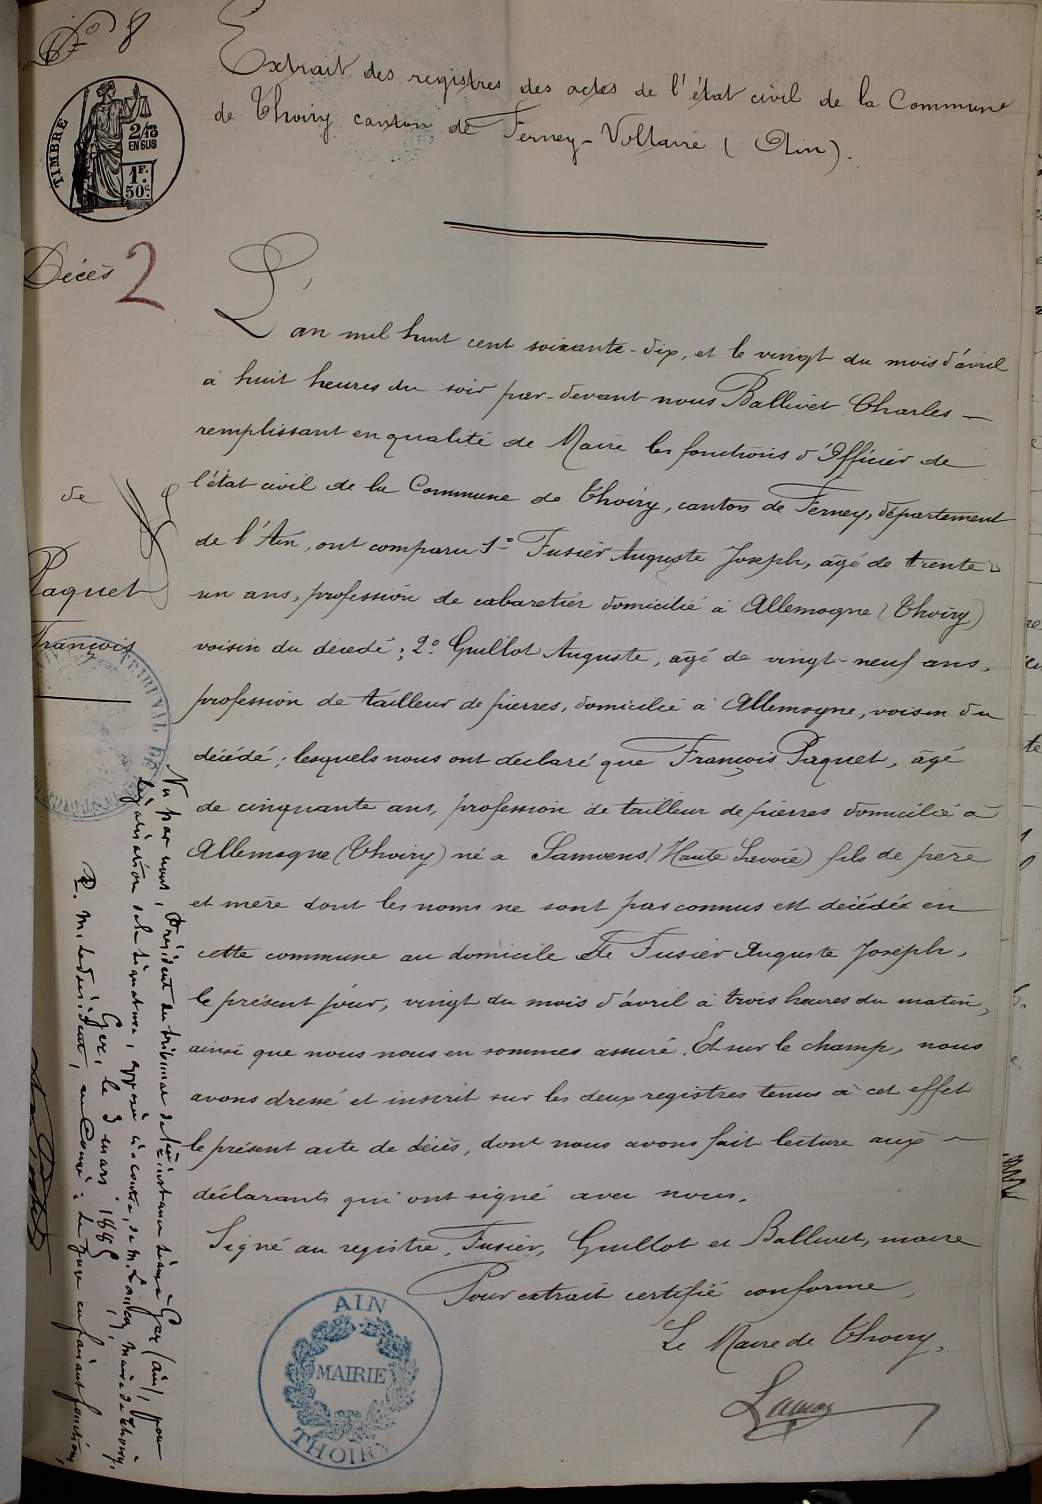 N° 8
Extrait des registres des actes de l'état civil de la Commune
de Thoiry canton de Ferney-Voltaire (Ain).
TIMBRE
2/10
EN SUS
1F.
50c.
Décès 2
de
Paquet
François
L'an mil huit cent soixante-dix, et le vingt du mois d'avril
à huit heures du soir par-devant nous Ballivet Charles
remplissant en qualité de Maire les fonctions d'Officier de
l'état civil de la Commune de Thoiry, canton de Ferney, département
de l'Ain, ont comparu 1° Fusier Auguste Joseph, âgé de trente
un ans, profession de cabaretier domicilié à Allemogne (Thoiry)
voisin du décédé; 2° Guillot Auguste, âgé de vingt-neuf ans,
profession de tailleur de pierres, domicilié à Allemogne, voisin du
décédé; lesquels nous ont déclaré que François Paquet, âgé
de cinquante ans, profession de tailleur de pierres domicilié à
Allemogne (Thoiry) né à Samoens (Haute Savoie) fils de père
et mère dont les noms ne sont pas connus est décédé en
cette commune au domicile de Fusier Auguste Joseph,
le présent jour, vingt du mois d'avril à trois heures du matin,
ainsi que nous nous en sommes assuré. Et sur le champ, nous
avons dressé et inscrit sur les deux registres tenus à cet effet
le présent acte de décès, dont nous avons fait lecture aux
déclarants qui ont signé avec nous.
Signé au registre, Fusier, Guillot et Ballivet, maire
Pour extrait certifié conforme,
Le Maire de Thoiry,
AIN
MAIRIE
THOIRY
TRIBUNAL DE
Vu par nous, Président du tribunal de 1ère instance séant à Gex (Ain), pour
légalisation de la signature, apposée ci-contre, de M. Lanoy, maire de Thoiry.
Gex, le 3 mars 1885
P. M. le Président, empêché: Le Juge en faisant fonctions,